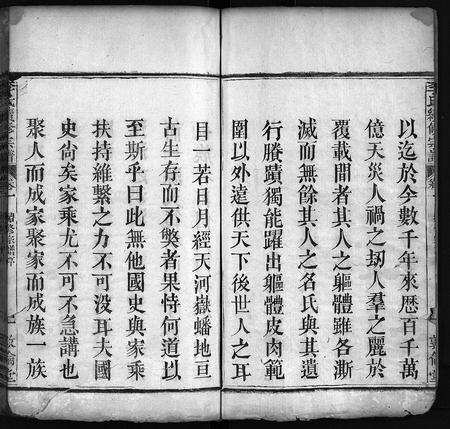 以迄於今數千年來歷百千萬
億天災人禍之刼人羣之麗於
覆載間者其人之軀體雖各澌
滅而無餘其人之名氏與其遺
行賸蹟獨能躍出軀體皮肉範
圍以外遠供天下後世人之耳
目一若日月經天河嶽蟠地亘
古生存而不獘者果恃何道以
至斯乎曰此無他國史與家乘
扶持維繫之力不可沒耳夫國
史尙矣家乘尤不可不急講也
聚人而成家聚家而成族一族
李氏續修宗譜 卷一
敦倫堂